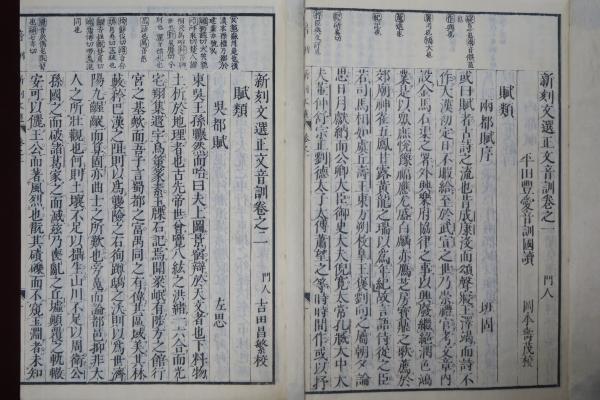 新刻文選正文音訓卷之一
平田豐愛音訓國讀 門人 岡本壽茂校
賦類
兩都賦序 班固
或曰賦者古詩之流也昔成康沒而頌聲寢王澤竭而詩不
作大漢初定日不暇給至於武宣之世乃崇禮官考文章內
設金馬石渠之署外興樂府協律之事以興廢繼絕潤色鴻
業是以衆庶悅豫福應尤盛白麟赤鴈芝房寶鼎之歌薦於
郊廟神雀五鳳甘露黃龍之瑞以爲年紀故言語侍從之臣
若司馬相如虞丘壽王東方朔枚皋王褒劉向之屬朝夕論
思日月獻納而公卿大臣御史大夫倪寬太常孔臧太中大
夫董仲舒宗正劉德太子太傅蕭望之等時時間作或以抒
新刻文選正文音訓卷之二
門人 吉田昌繁校
賦類
吳都賦 左思
東吳王孫囅然而咍曰夫上圖景宿辯於天文者也下料物
土析於地理者也古先帝世曾覽八紘之洪緒一六合而光
宅翔集遐宇鳥策篆素玉牒石記烏聞梁岷有陟方之館行
宮之基歟而吾子言蜀都之富禺同之有瑋其區域美其林
藪矜巴漢之阻則以爲襲險之右徇蹲鴟之沃則以爲世濟
陽九齷齪而筭顧亦曲士之所歎也旁魄而論都抑非大
人之所壯觀也何則土壤不足以攝生山川不足以周衛公
孫國之而破諸葛家之而滅茲乃喪亂之丘墟顛覆之軌轍
安可以儷王公而著風烈也翫其磧礫而不窺玉淵者未知